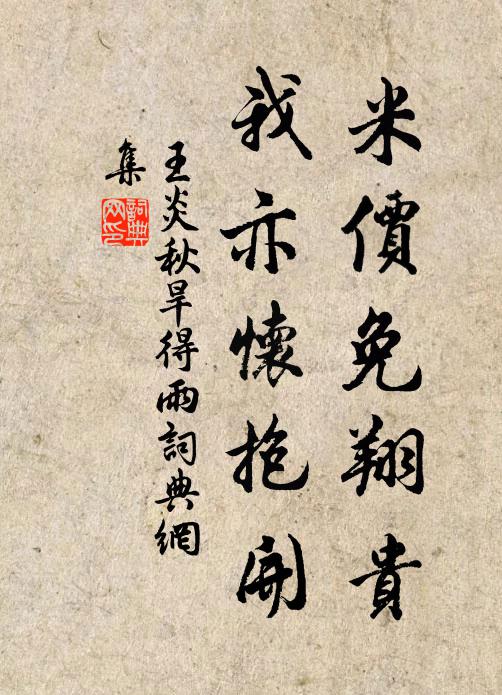 米價免翔貴
我亦懷抱開
王炎秋旱得雨詞典網
集
詞典
网印